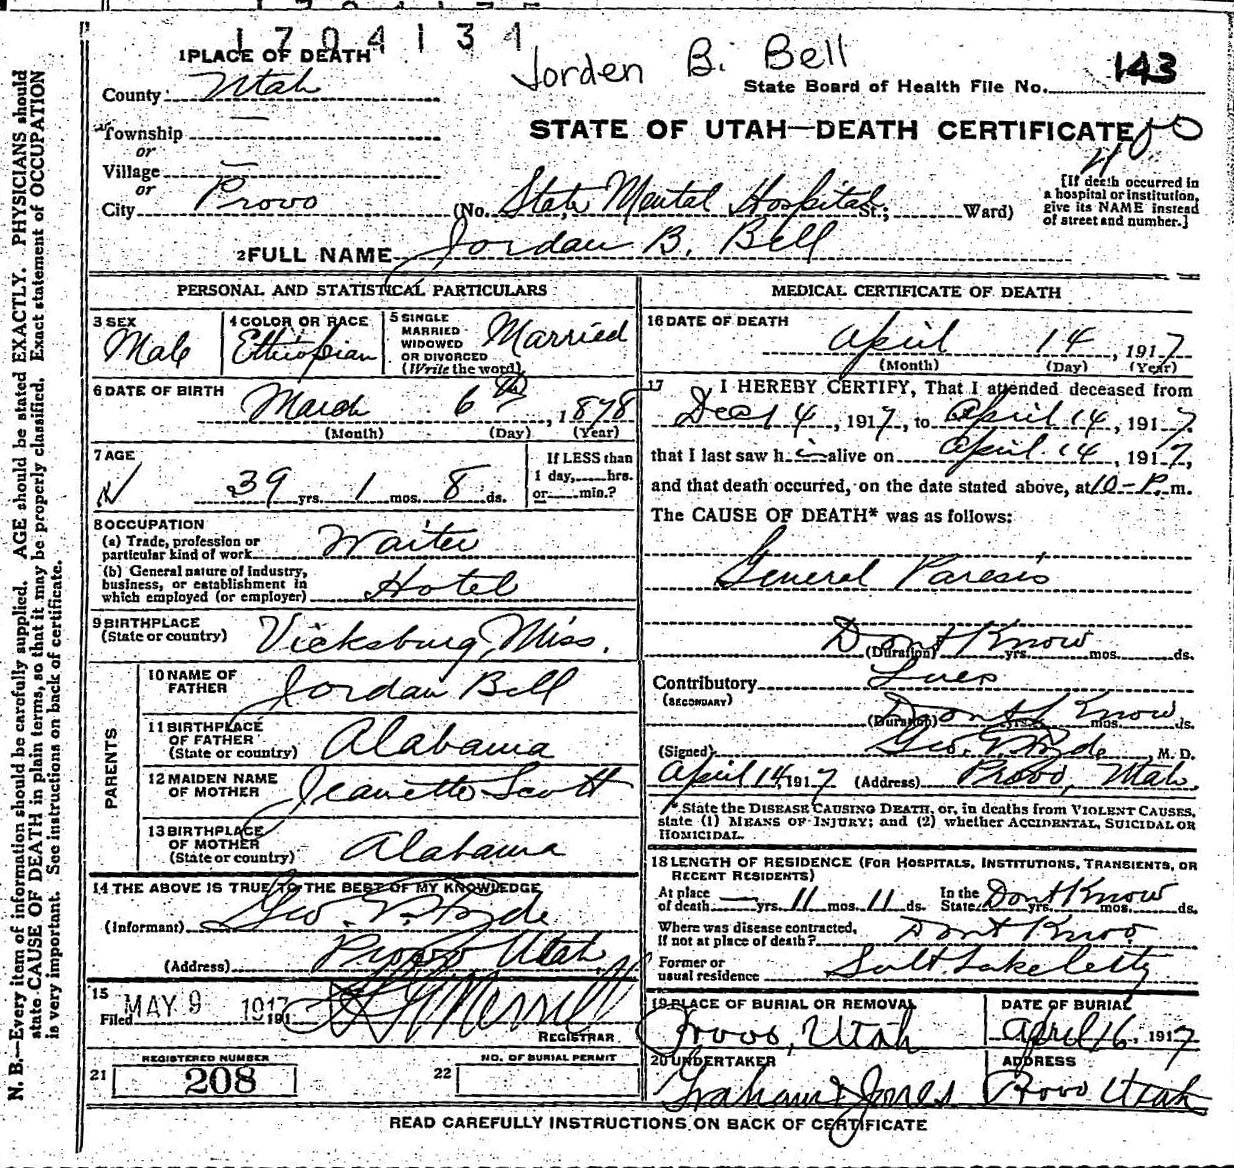 1704134
Jorden B. Bell
1 PLACE OF DEATH
County Utah
State Board of Health File No. 143
Township —
or
STATE OF UTAH—DEATH CERTIFICATE
Village —
or
City Provo
(No. State Mental Hospital St.; Ward)
[If death occurred in
a hospital or institution,
give its NAME instead
of street and number.]
2 FULL NAME Jordan B. Bell
PERSONAL AND STATISTICAL PARTICULARS
3 SEX
Male
4 COLOR OR RACE
Ethiopian
5 SINGLE
MARRIED
WIDOWED
OR DIVORCED
(Write the word)
Married
6 DATE OF BIRTH
March 6th, 1878
(Month) (Day) (Year)
7 AGE
39 yrs. 1 mos. 8 ds.
If LESS than
1 day, hrs.
or min.?
8 OCCUPATION
(a) Trade, profession or
particular kind of work Waiter
(b) General nature of industry,
business, or establishment in
which employed (or employer) Hotel
9 BIRTHPLACE
(State or country) Vicksburg, Miss.
PARENTS
10 NAME OF
FATHER Jordan Bell
11 BIRTHPLACE
OF FATHER
(State or country) Alabama
12 MAIDEN NAME
OF MOTHER Jeanette Scott
13 BIRTHPLACE
OF MOTHER
(State or country) Alabama
14 THE ABOVE IS TRUE TO THE BEST OF MY KNOWLEDGE
(Informant) Geo. E. Hyde
(Address) Provo Utah
15
Filed MAY 9 1917 191
Merrill
REGISTRAR
REGISTERED NUMBER
21 208
NO. OF BURIAL PERMIT
22
MEDICAL CERTIFICATE OF DEATH
16 DATE OF DEATH
April 14, 1917
(Month) (Day) (Year)
17 I HEREBY CERTIFY, That I attended deceased from
Dec 14, 1917, to April 14, 1917.
that I last saw him alive on April 14, 1917,
and that death occurred, on the date stated above, at 10-P. m.
The CAUSE OF DEATH* was as follows:
General Paresis
Dont Know
(Duration) yrs. mos. ds.
Contributory Lues
(SECONDARY)
Dont Know
(Duration) yrs. mos. ds.
(Signed) Geo. E. Hyde M. D.
April 14, 1917 (Address) Provo, Utah
*State the DISEASE CAUSING DEATH, or, in deaths from VIOLENT CAUSES,
state (1) MEANS OF INJURY; and (2) whether ACCIDENTAL, SUICIDAL OR
HOMICIDAL.
18 LENGTH OF RESIDENCE (FOR HOSPITALS, INSTITUTIONS, TRANSIENTS, OR
RECENT RESIDENTS)
At place
of death — yrs. 11 mos. 11 ds.
In the
State Dont Know yrs. mos. ds.
Where was disease contracted,
if not at place of death? Dont Know
Former or
usual residence Salt Lake City
19 PLACE OF BURIAL OR REMOVAL
Provo, Utah
DATE OF BURIAL
April 16, 1917
20 UNDERTAKER
Graham & Jones
ADDRESS
Provo Utah
READ CAREFULLY INSTRUCTIONS ON BACK OF CERTIFICATE
N. B.—Every item of information should be carefully supplied. AGE should be stated EXACTLY. PHYSICIANS should
state CAUSE OF DEATH in plain terms, so that it may be properly classified. Exact statement of OCCUPATION
is very important. See instructions on back of certificate.